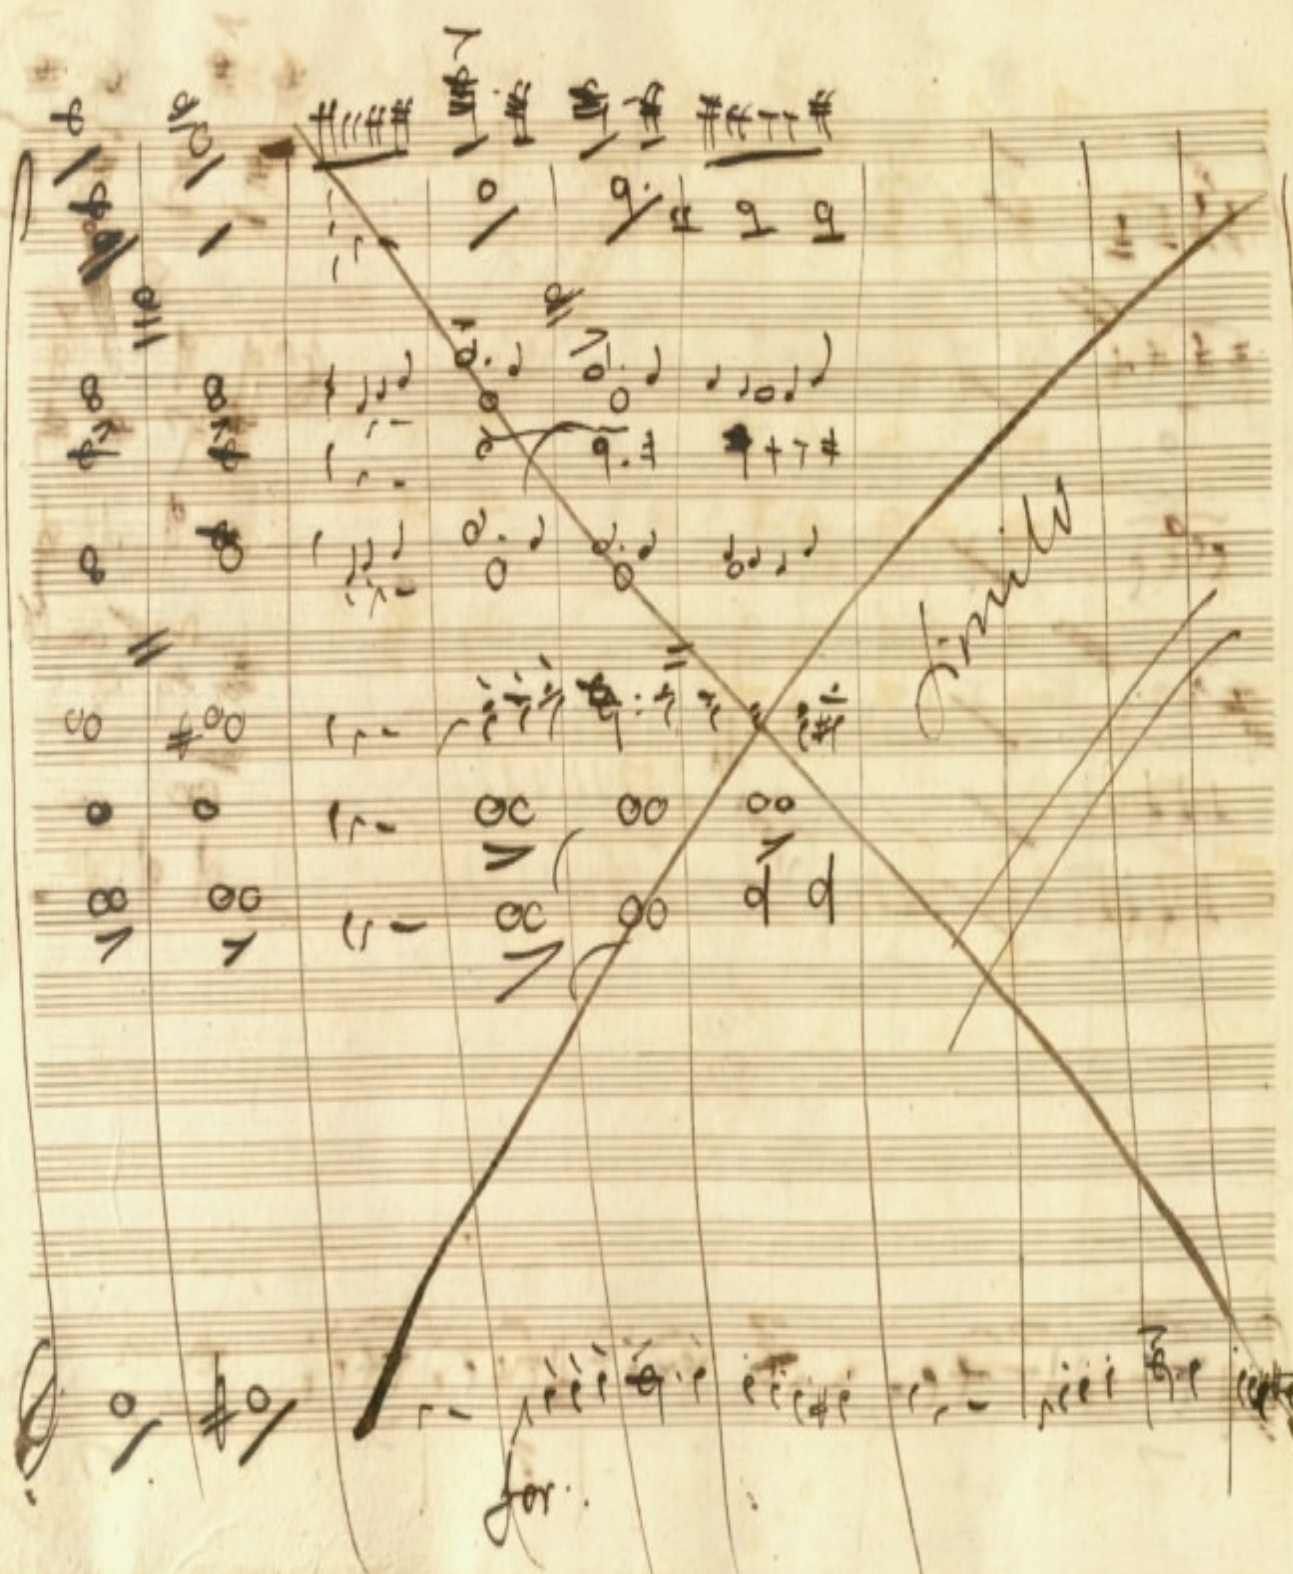 simile
for: